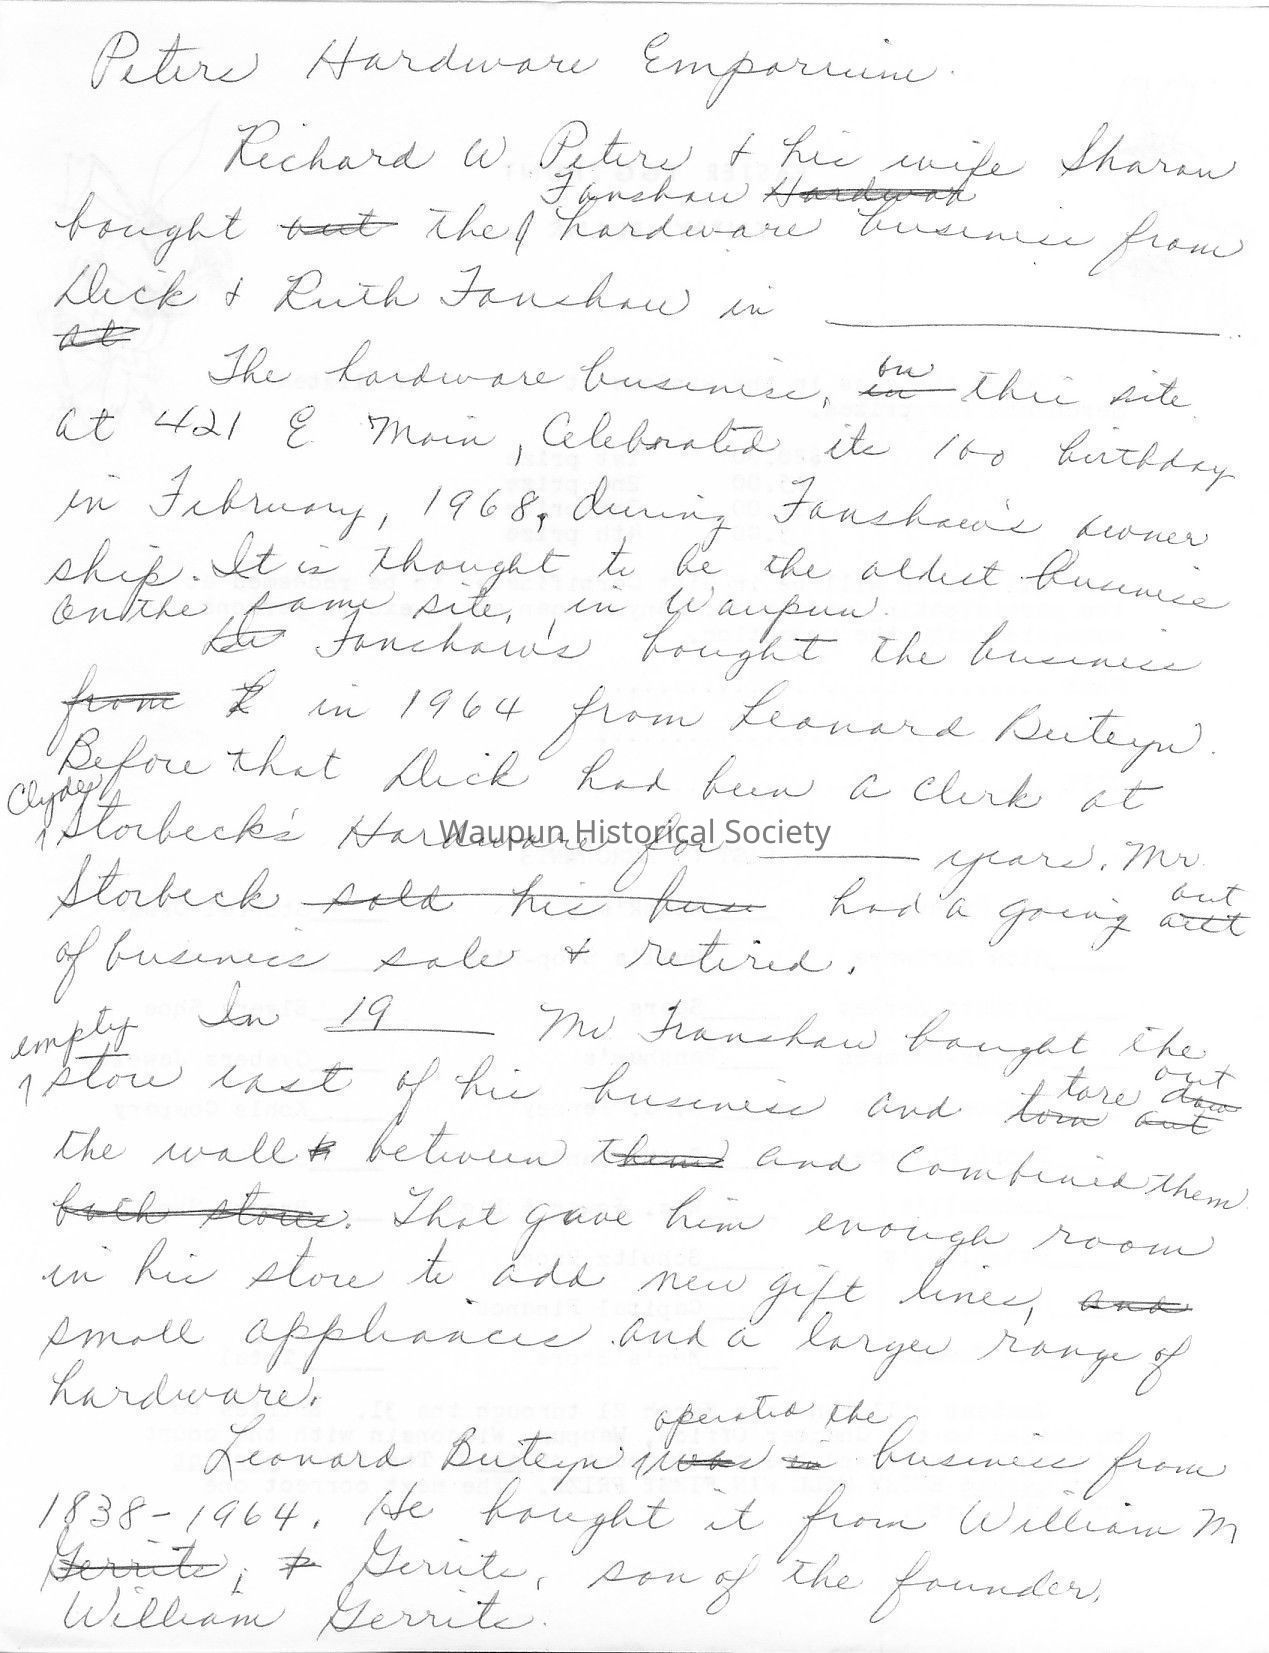 Peters Hardware Emporium.
Richard W. Peters + his wife Sharon
Fanshaw Hardwar
bought out the hardware business from
Dick + Ruth Fanshaw in ________.
at
on
The hardware business, in this site
at 421 E Main, Celebrated its 100 birthday
in February, 1968, during Fanshaw's owner
ship. It is thought to be the oldest business
on the same site, in Waupun.
Fanshaw's bought the business
from L in 1964 from Leonard Buteyn.
Before that Dick had been a clerk at
Clyde
Storbeck's Hardware for ______ years. Mr.
Waupun Historical Society
out
Storbeck sold his busi had a going
of business sale + retired.
In 19____ Mr Franshaw bought the
empty
out
store east of his business and torn out
tore dow
the wall between them and combined them
both stores. That gave him enough room
in his store to add new gift lines, and
small appliances and a larger range of
hardware.
operated the
Leonard Buteyn was in business from
1838-1964. He bought it from William M
Gerrits, Gerrits, son of the founder,
William Gerrits.